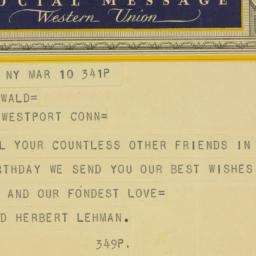 OCIAL MESSAGE
Western Union
NY MAR 10 341P
WALD=
WESTPORT CONN=
L YOUR COUNTLESS OTHER FRIENDS IN
RTHDAY WE SEND YOU OUR BEST WISHES
AND OUR FONDEST LOVE=
D HERBERT LEHMAN.
349P.